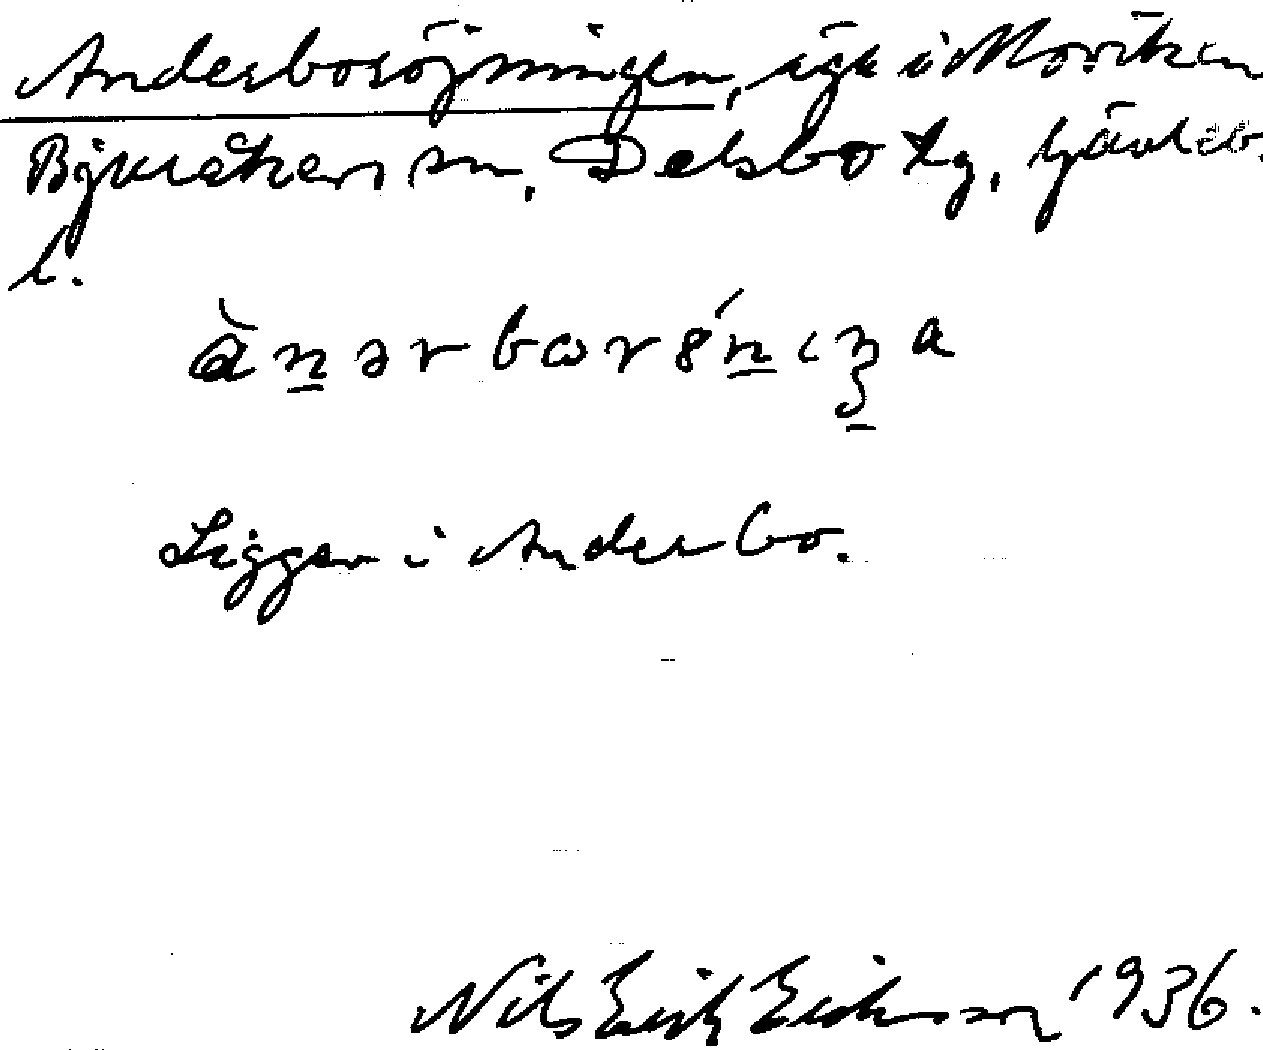 Anderboröjningen, äga i Moviken
Bjuråkers sn, Delsbo tg, Gävleb.
l.
ànərbωrøńıŋa
Ligger i Anderbo.
Nils Erik Eriksson 1936.